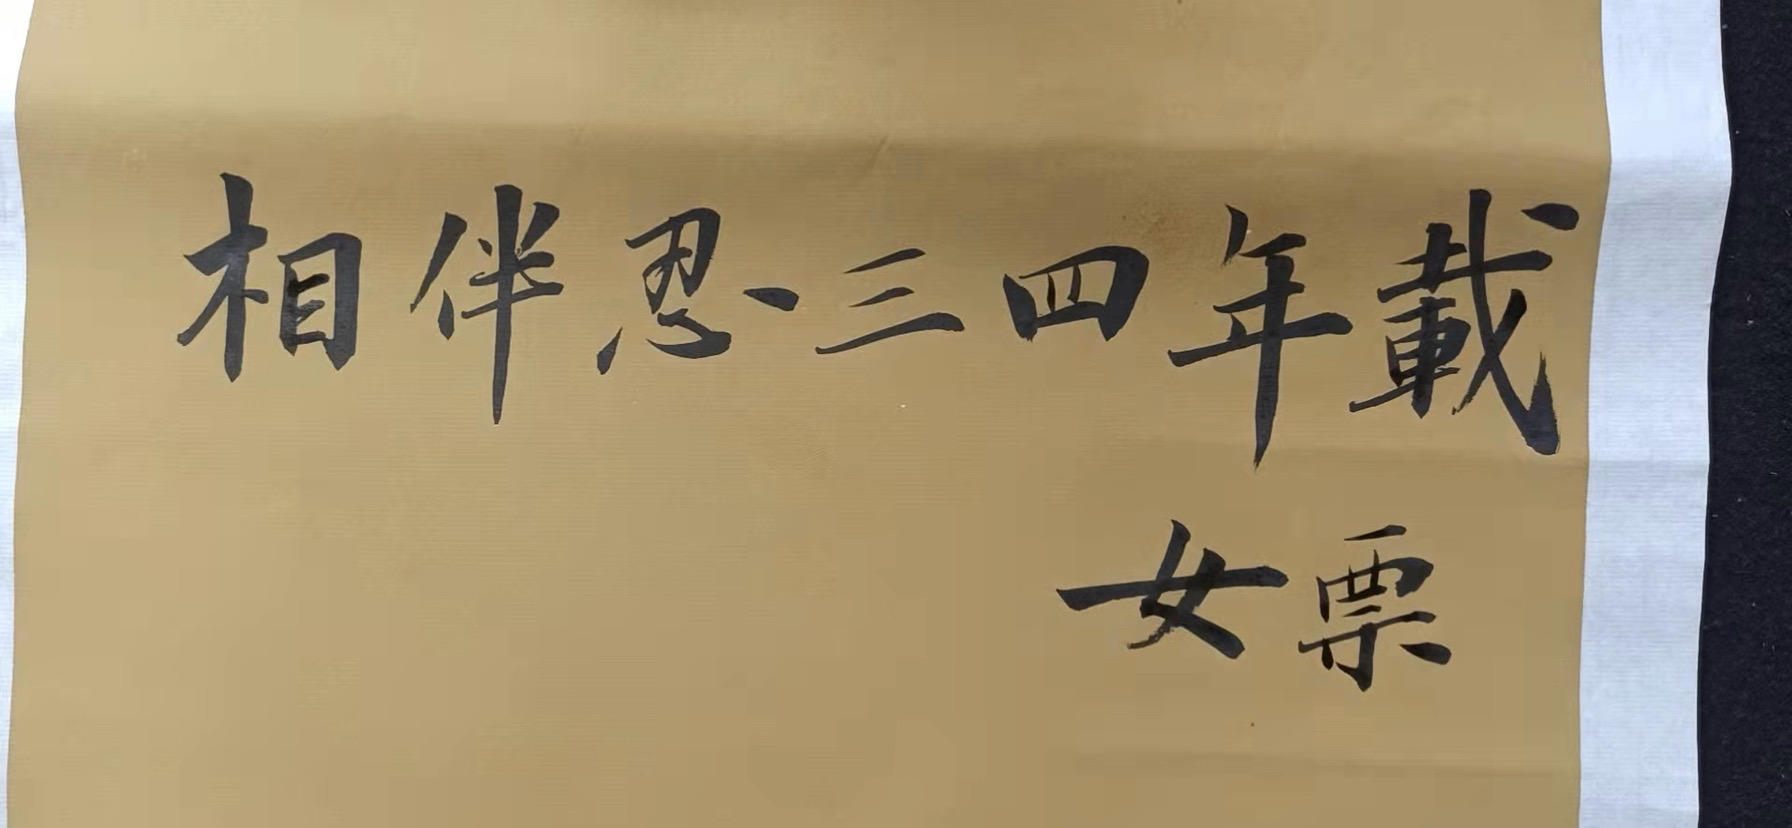 相伴忍三四年載
女票